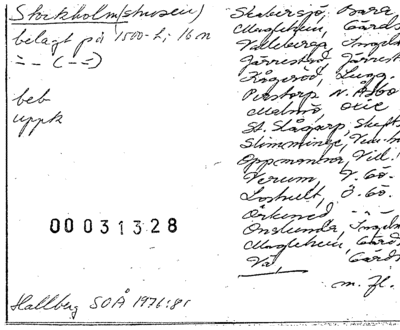 Stockholm(srosen)
belagt på 1500-t; 16 n
= - (- =)
beb
uppk
00031328
Hallberg SOÅ 1976:81
Skabersjö, Bara
Maglehem, Gärds
Valleberga, Ingels
Järrestad, Järrest
Kågeröd, Lugg.
Perstorp N. Åsbo
Malmö, Oxie
St. Slågarp, Skytts
Slimminge, Vemm
Oppmanna, Vill.
Verum, V. Gö.
Loshult, Ö. Gö.
Örkened, - " -
Onslunda, Ingels
Maglehem, Gärd
Vä, Gärds
m. fl.